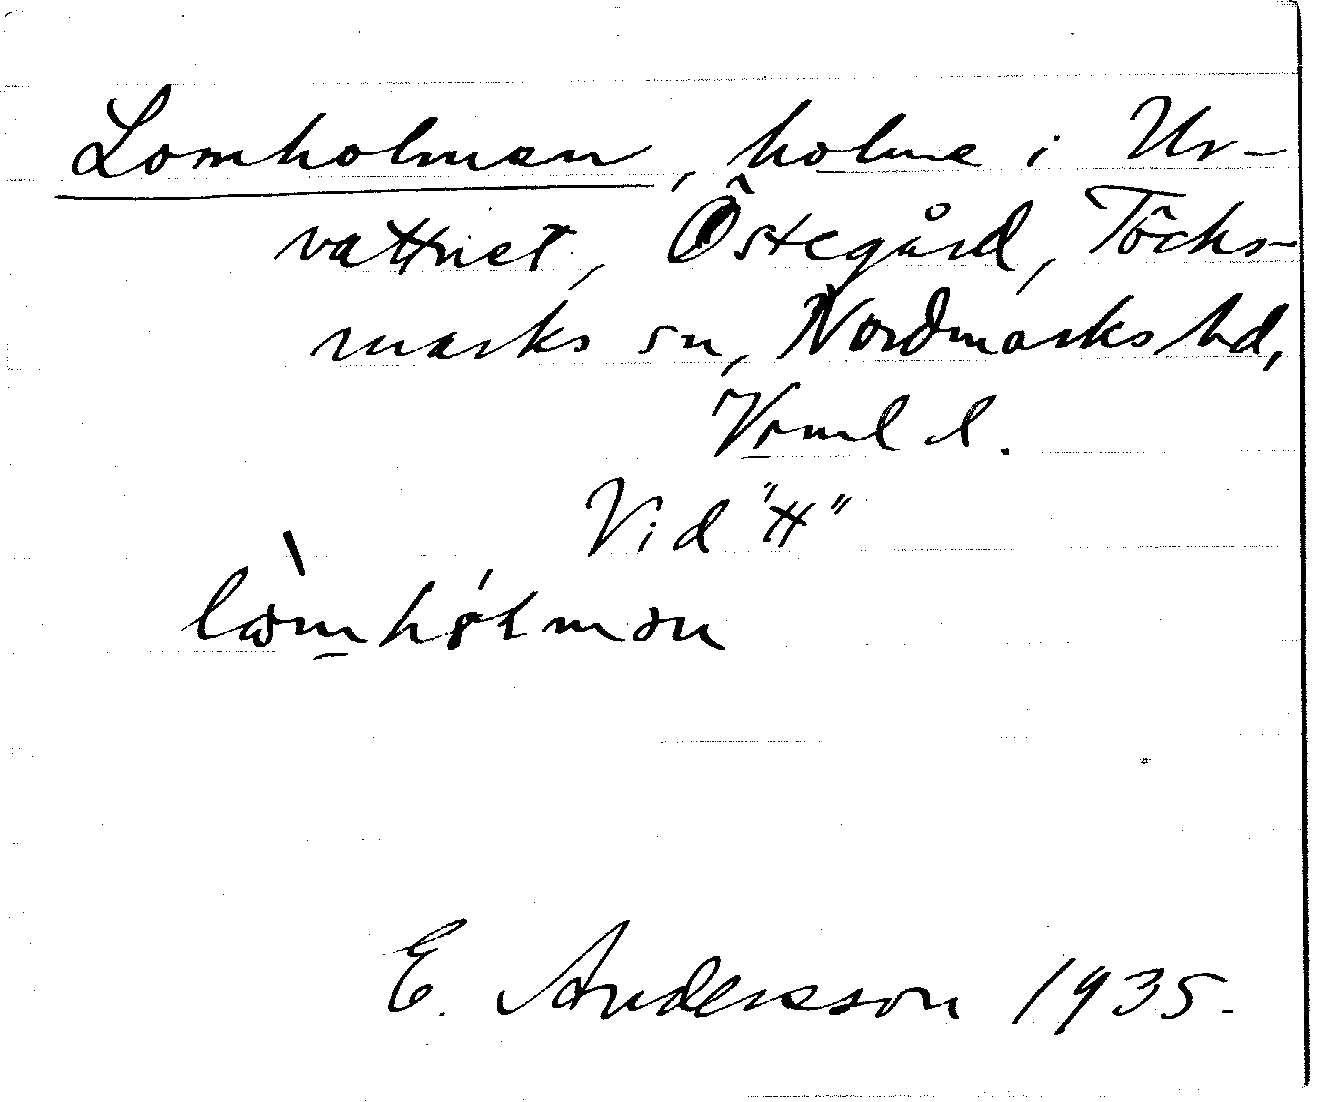 Lomholman, holme i Ur-
vattnet, Östegård, Töcks-
marks sn, Nordmarks hd,
Vrml l.
Vid "H"
E. Andersson 1935.